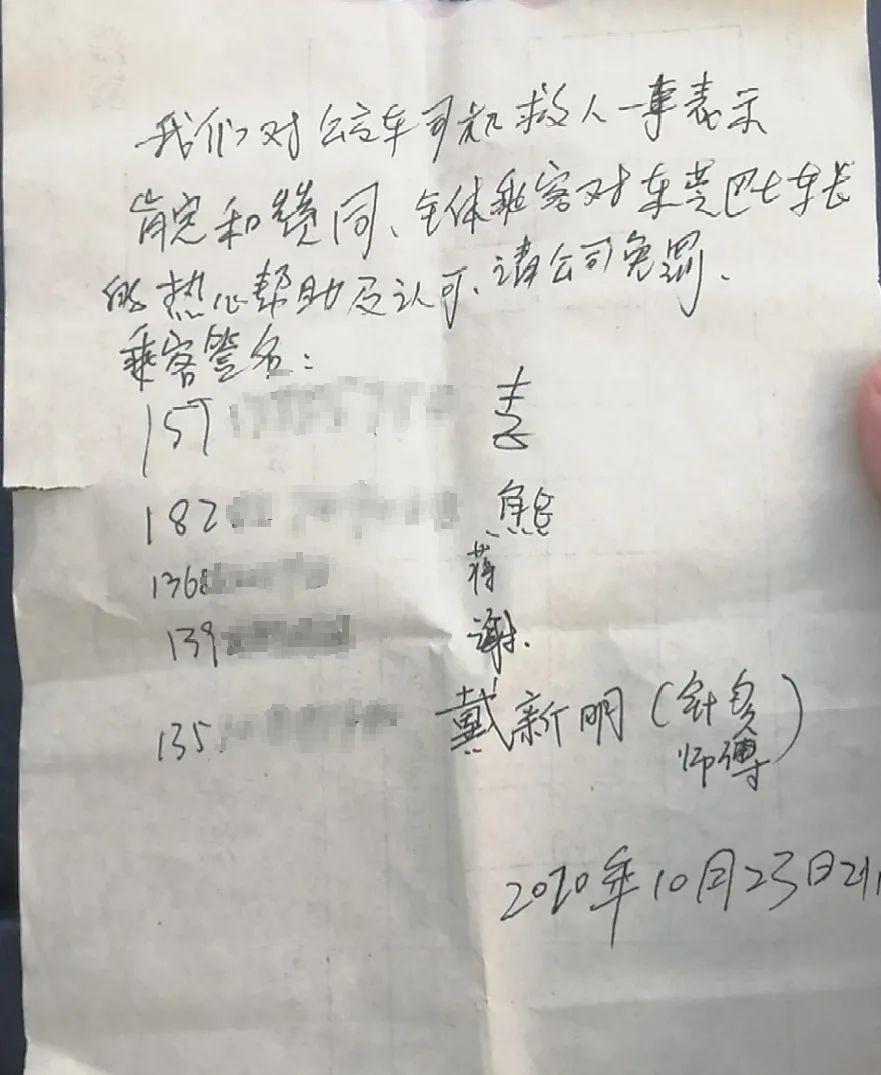 我们对公交车司机救人一事表示
肯定和赞同、全体乘客对东莞巴士车长
的热心帮助及认可、请公司免罚.
乘客签名:
157 李
182 熊
136 蒋
139 谢.
135 戴新明(针灸
师傅)
2020年10月23日21